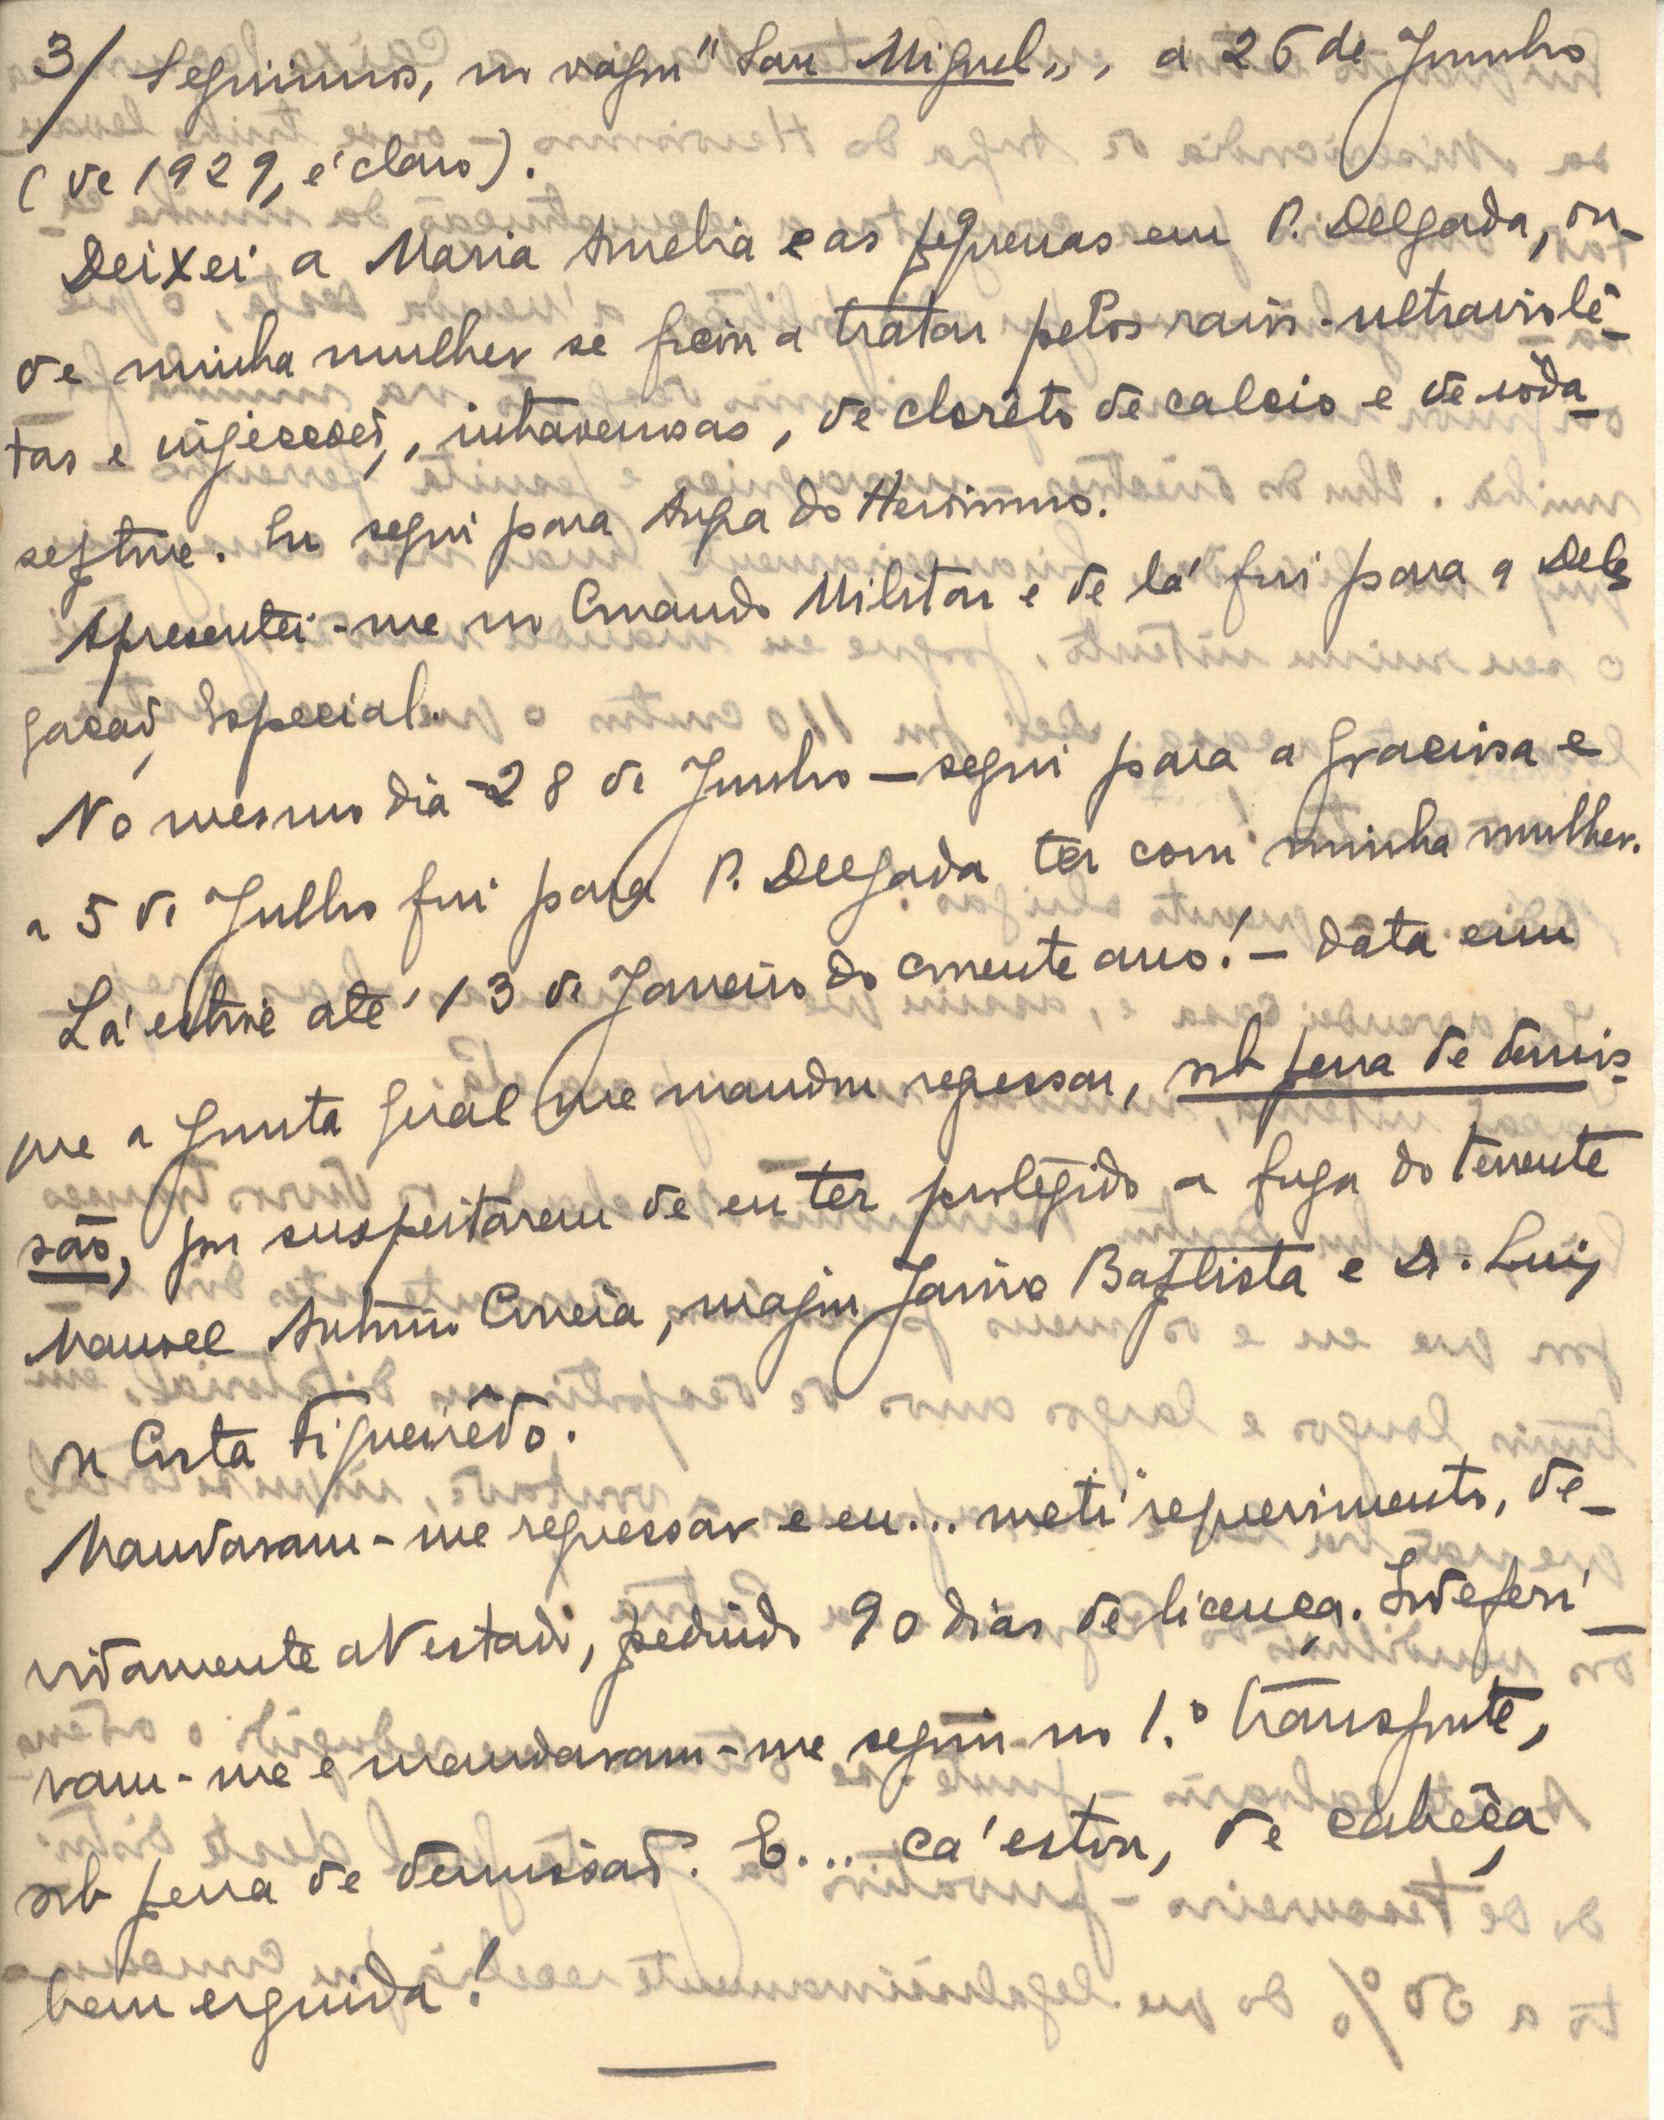 3/ Seguimos, no vapor "San Miguel", a 26 de Junho
(de 1929, é claro).
Deixei a Maria Amelia e as pequenas em P. Delgada, on-
de minha mulher se ficou a tratar pelos raios-ultraviolê-
tas e injecções, intravenosas, de clorêto de calcio e de
septine. Eu segui para Angra do Heroismo.
Apresentei-me no Comando Militar e de lá fui para a Dele
gação Especial.
No mesmo dia - 28 de Junho - segui para a Graciosa e
a 5 de Julho fui para P. Delgada ter com minha mulher.
Lá estive até 13 de Janeiro do corrente ano! - data em
que a Junta Geral me mandou regressar, sob pena de demis-
são, por suspeitarem de eu ter protegido a fuga do tenente
Manoel António Correia, major Jaime Baptista e Dr. Luiz
da Costa Figueirêdo.
Mandaram-me regressar e eu... meti requerimento, de-
vidamente atestado, pedindo 90 dias de licença. Indeferi-
ram-me e mandaram-me seguir no 1.º transporte,
sob pena de demissão. E... cá estou, de cabêça
bem erguida!